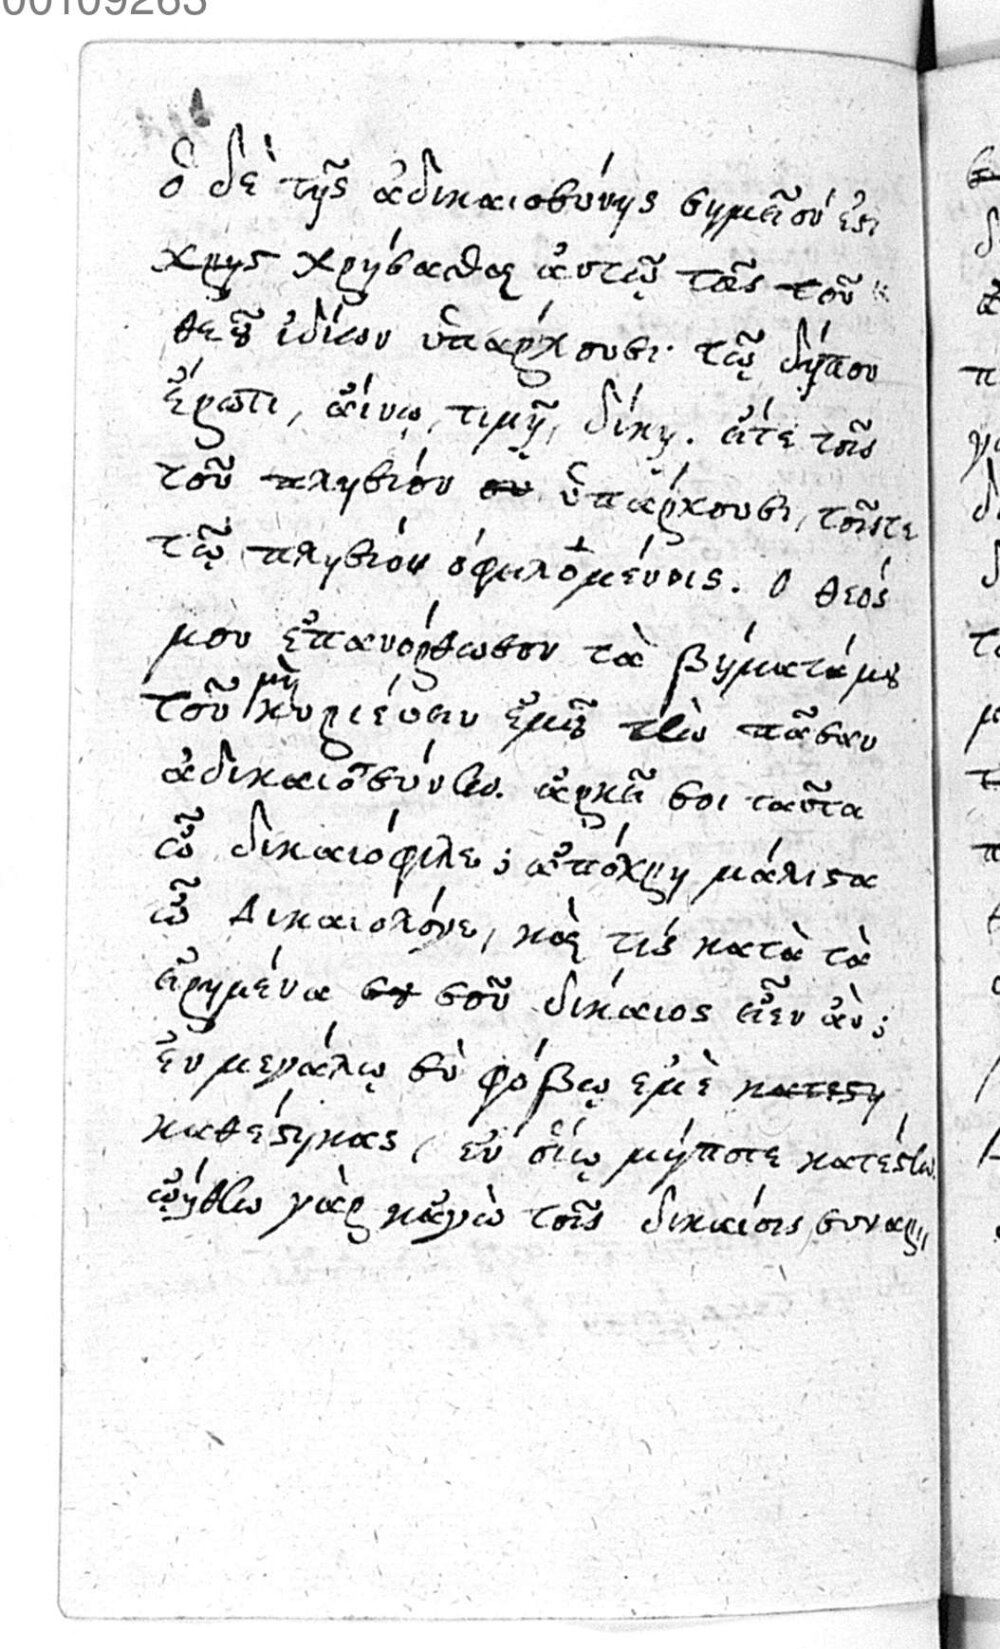 00109263
ὃ δὲ τῆς ἀδικαιοσύνης σημεῖον ἐστι
χρης χρήσασθαι ἀυτῷ τοῖς τοῦ
θεοῦ ἰδίων ὑπάρχουσι· τῷ δήπου
ἔρωτι, ἀίνῳ, τιμῇ, δίκῃ. εἴτε τοῖς
τοῦ πλησίον ὑπάρχουσι, τοῖς τε
τῷ πλησίον ὀφειλομένοις. Ὁ θεός
μου ἐπανόρθωσον τὰ βήματά μου
τοῦ μὴ κυριεύσαι ἐμοῦ τὴν πᾶσαν
ἀδικαιοσύνην. ἀρκεῖ σοι ταῦτα
ὦ δικαιόφιλε; ἀπόχρη μάλιστα
ὦ Δικαιολόγε, καὶ τίς κατὰ τὰ
εἰρημένα σου σοῦ δίκαιος εἶεν ἂν;
ἐν μεγάλῳ σὺ φόβῳ ἐμὲ κατεστη
καθέστηκας, ἐν οἵῳ μήποτε κατέστην.
ᾠήθην γὰρ κἀγὼ τοῖς δικαίοις συναρι